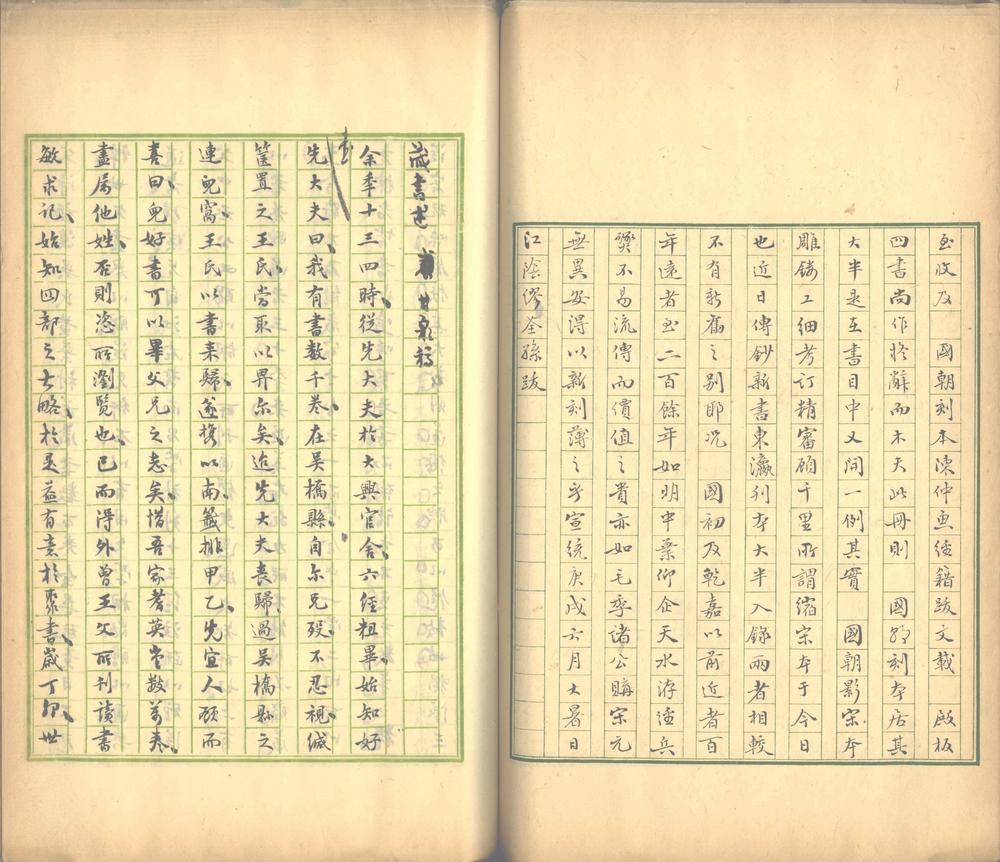 至收及　國朝刻本陳仲魚經籍跋文載　殿板
四書尚作疑辭而木夫此冊則　國朝刻本居其
大半是至書目中又開一例其實　國朝影宋本
雕鏤工細考訂精審顧千里所謂縮宋本于今日
也近日傳鈔新書東瀛刊本大半入錄兩者相較
不有新舊之別耶況　國初及乾嘉以前近者百
年遠者至二百餘年如明中葉仰企天水洊經兵
燹不易流傳而價值之貴亦如毛季諸公購宋元
無異安得以新刻薄之乎宣統庚戌六月大暑日
江陰繆荃孫跋
藏書述　甘泉稿
余年十三四時從先大夫於大興官舍六經粗畢始知好
書
先大夫曰我有書數千卷在吳橋縣自尔兄歿不忍視緘
篋置之王氏當取以畀尔矣迨先大夫喪歸過吳橋縣之
連兒窩王氏以書来歸遂攜以南籤排甲乙先宜人顧而
喜曰兒好書可以畢父兄之志矣惜吾家耆英堂數萬卷
盡屬他姓否則恣所瀏覽也已而得外曾王父所刊讀書
敏求記始知四部之大略於是益有意於聚書歲丁卯世